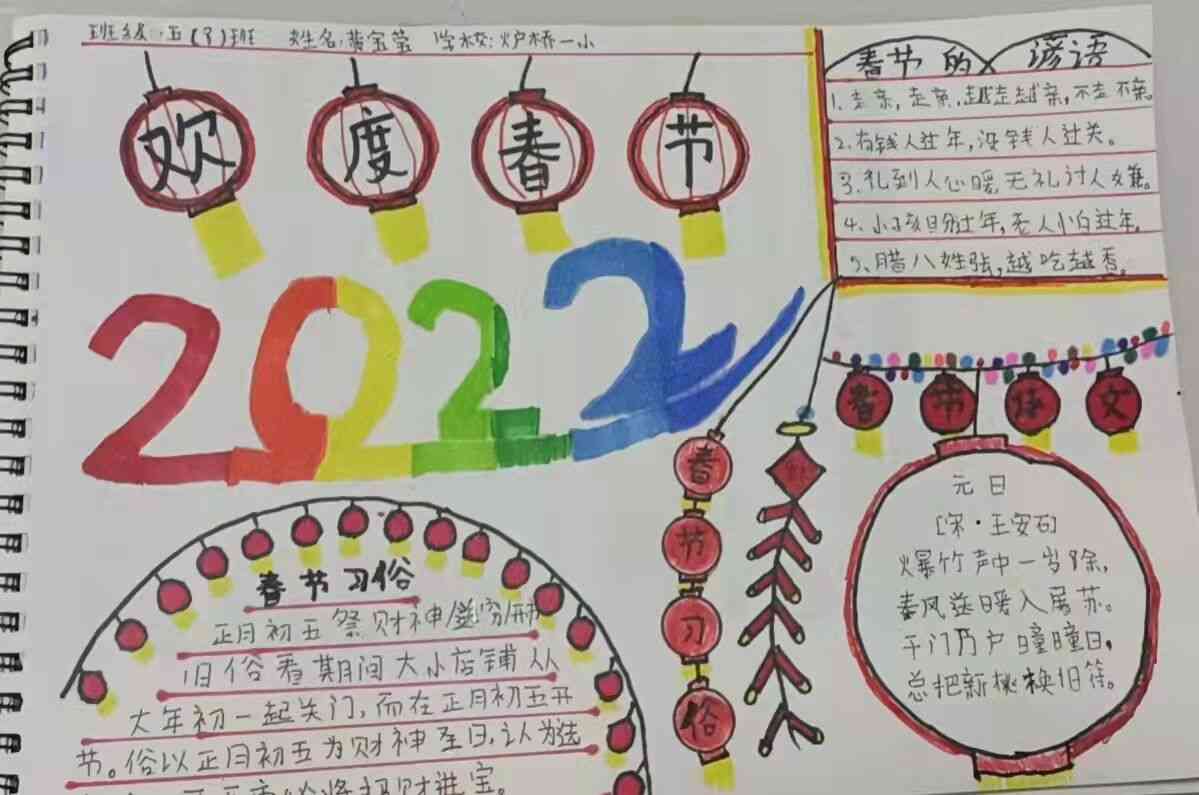 班级:五(3)班 姓名:黄宝莹 学校:炉桥一小
欢度春节
2022
春节的谚语
1、走亲,走亲,越走越亲,不走不亲。
2.有钱人过年,没钱人过关。
3.礼到人心暖,无礼讨人嫌。
4、小孩盼过年,老人怕过年,
5、腊八姓张,越吃越香。
春节诗文
元日
[宋·王安石]
爆竹声中一岁除,
春风送暖入屠苏。
千门万户瞳瞳日,
总把新桃换旧符。
春节习俗
春节习俗
正月初五祭财神/送穷/开
旧俗春期间大小店铺从
大年初一起关门,而在正月初五开
节。俗以正月初五为财神圣日,认为选
财进宝。